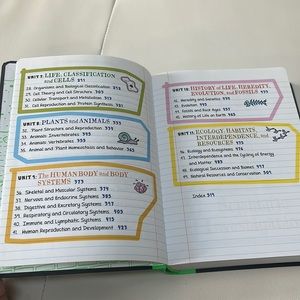 UNIT 7: LIFE: CLASSIFICATION
and CELLS 271
28. Organisms and Biological Classification 272
29. Cell Theory and Cell Structure 283
30. Cellular Transport and Metabolism 293
31. Cell Reproduction and Protein Synthesis 301
UNIT 8: PLANTS and ANIMALS 313
32. Plant Structure and Reproduction
33. Animals: Invertebrates
34. Animals: Vertebrates
35. Animal and Plant Homeostasis and Behavior 363
UNIT 9: The HUMAN BODY and BODY
SYSTEMS 373
36. Skeletal and Muscular Systems 374
37. Nervous and Endocrine Systems 385
38. Digestive and Excretory Systems
39. Respiratory and Circulatory Systems
40. Immune and Lymphatic Systems
41. Human Reproduction and Development 423
UNIT 10: HISTORY of LIFE: HEREDITY,
EVOLUTION, and FOSSILS
Heredity and Genetics
Evolution
Fossils and Rock Ages
History of Life on Earth
UNIT 11: ECOLOGY: HABITATS,
INTERDEPENDENCE, and
RESOURCES
Ecology and Ecosystems
Interdependence and the Cycling of Energy
and Matter
Ecological Succession and Biomes
Natural Resources and Conservation
Index